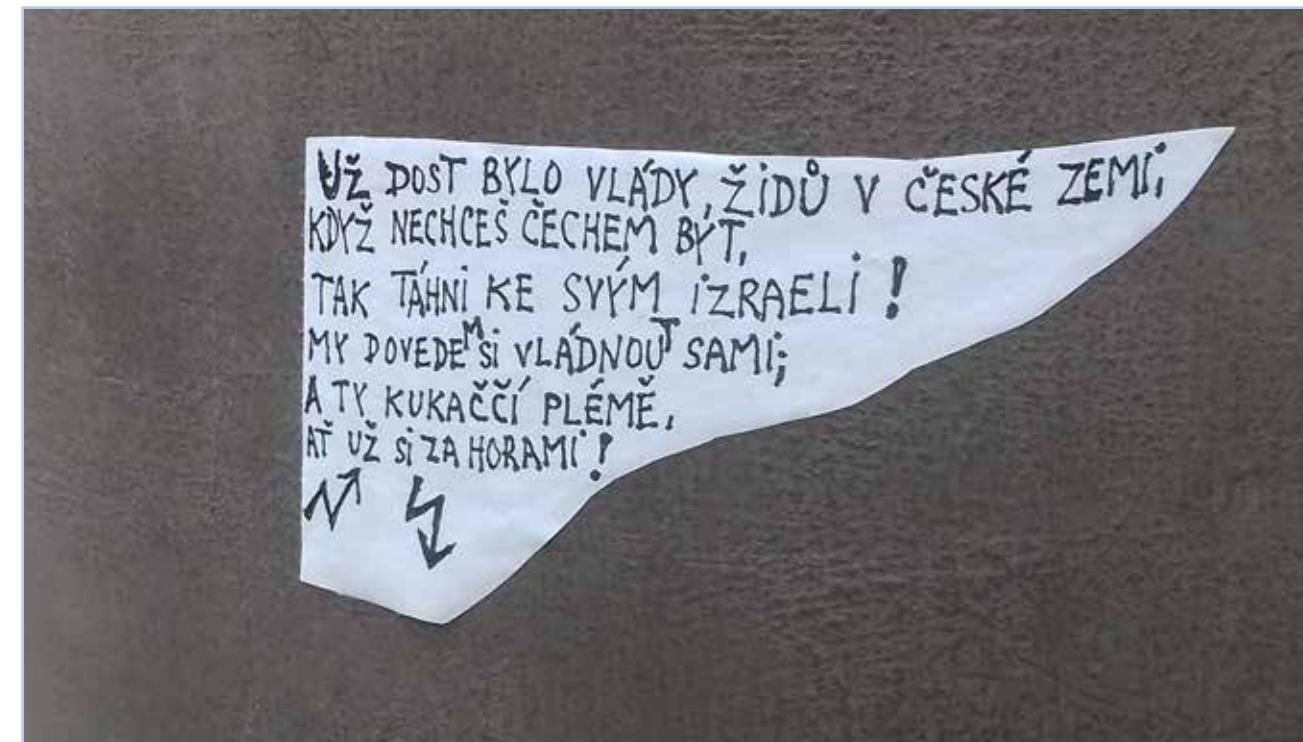 UŽ DOST BYLO VLÁDY, ŽiDŮ V ČESKÉ ZEMi;
KDYŽ NECHCEŠ ČECHEM BÝT,
TAK TÁHNi KE SVÝM iZRAELi!
MY DOVEDEM Si VLÁDNOUT SAMi;
A TY KUKAČČÍ PLÉMĚ,
AŤ UŽ Si ZA HORAMi!